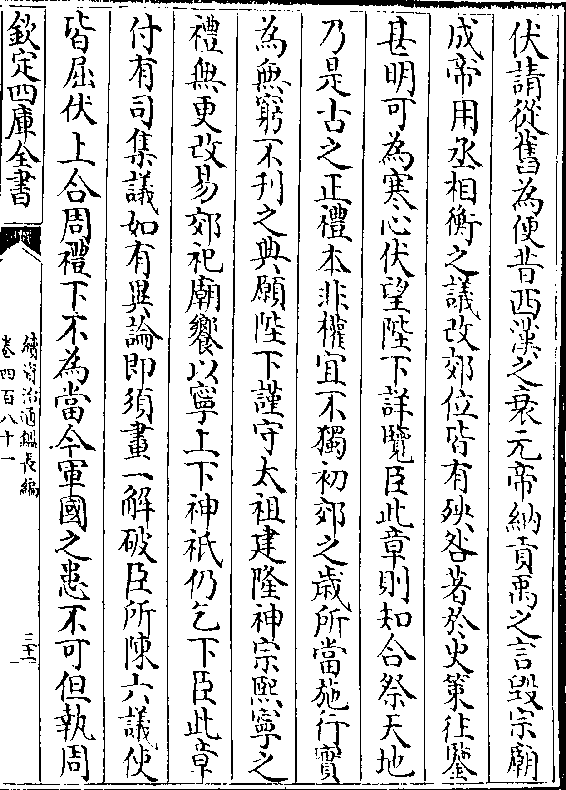 伏請從舊為便昔西漢之衰元帝納貢禹之言毀宗廟
成帝用丞相衡之議改郊位皆有殃咎著於史策往鑒
甚明可為寒心伏望陛下詳覽臣此章則知合祭天地
乃是古之正禮本非權宜不獨初郊之歲所當施行實
為無窮不刊之典願陛下謹守太祖建隆神宗熙寧之
禮無更改易郊祀廟饗以寧上下神祇仍乞下臣此章
付有司集議如有異論即須畫一解破臣所陳六議使
皆屈伏上合周禮下不為當今軍國之患不可但執周
欽定四庫全書
續資治通鑑長編
卷四百八十一
三十二